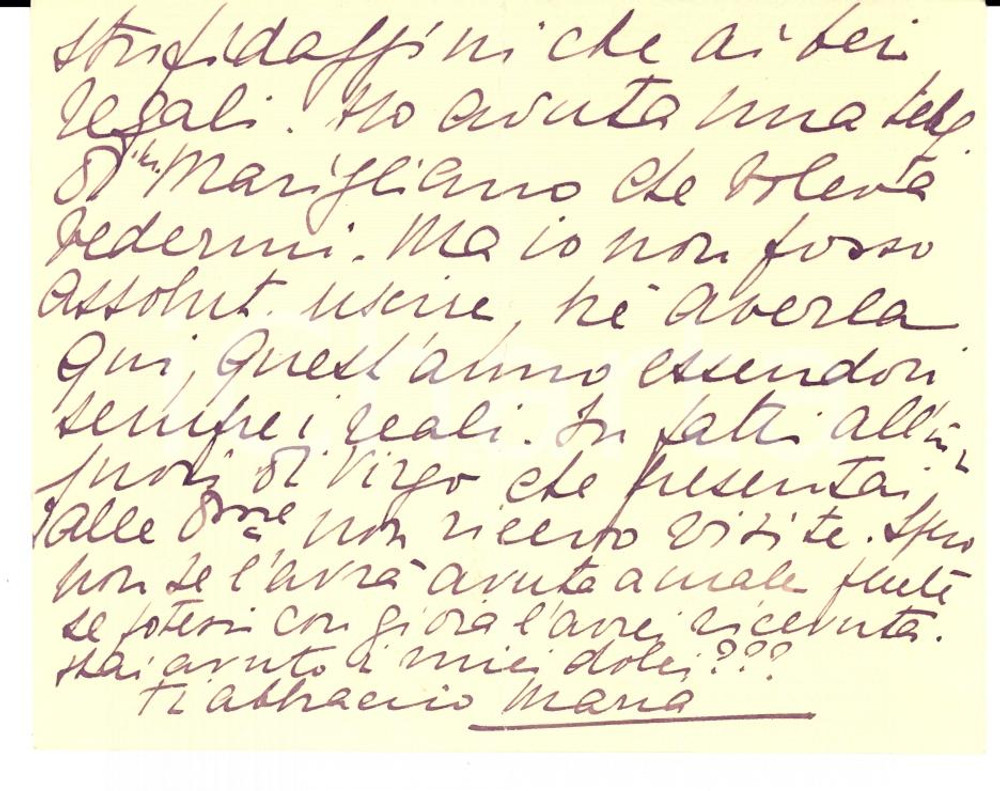 stupidaggini che ai bei
regali. Ho avuta una telef.
di Marigliano che voleva
vedermi. Ma io non posso
assolut. uscire, né averla
qui, quest'anno essendovi
sempre i reali. In fatti all'in
fuori di Virgo che presentai
alle non ricevo visite. Spero
non se l'avrà avuta a male perché
se potessi con gioia l'avrei ricevuta.
Hai avuto i miei dolci???
Ti abbraccio Maria